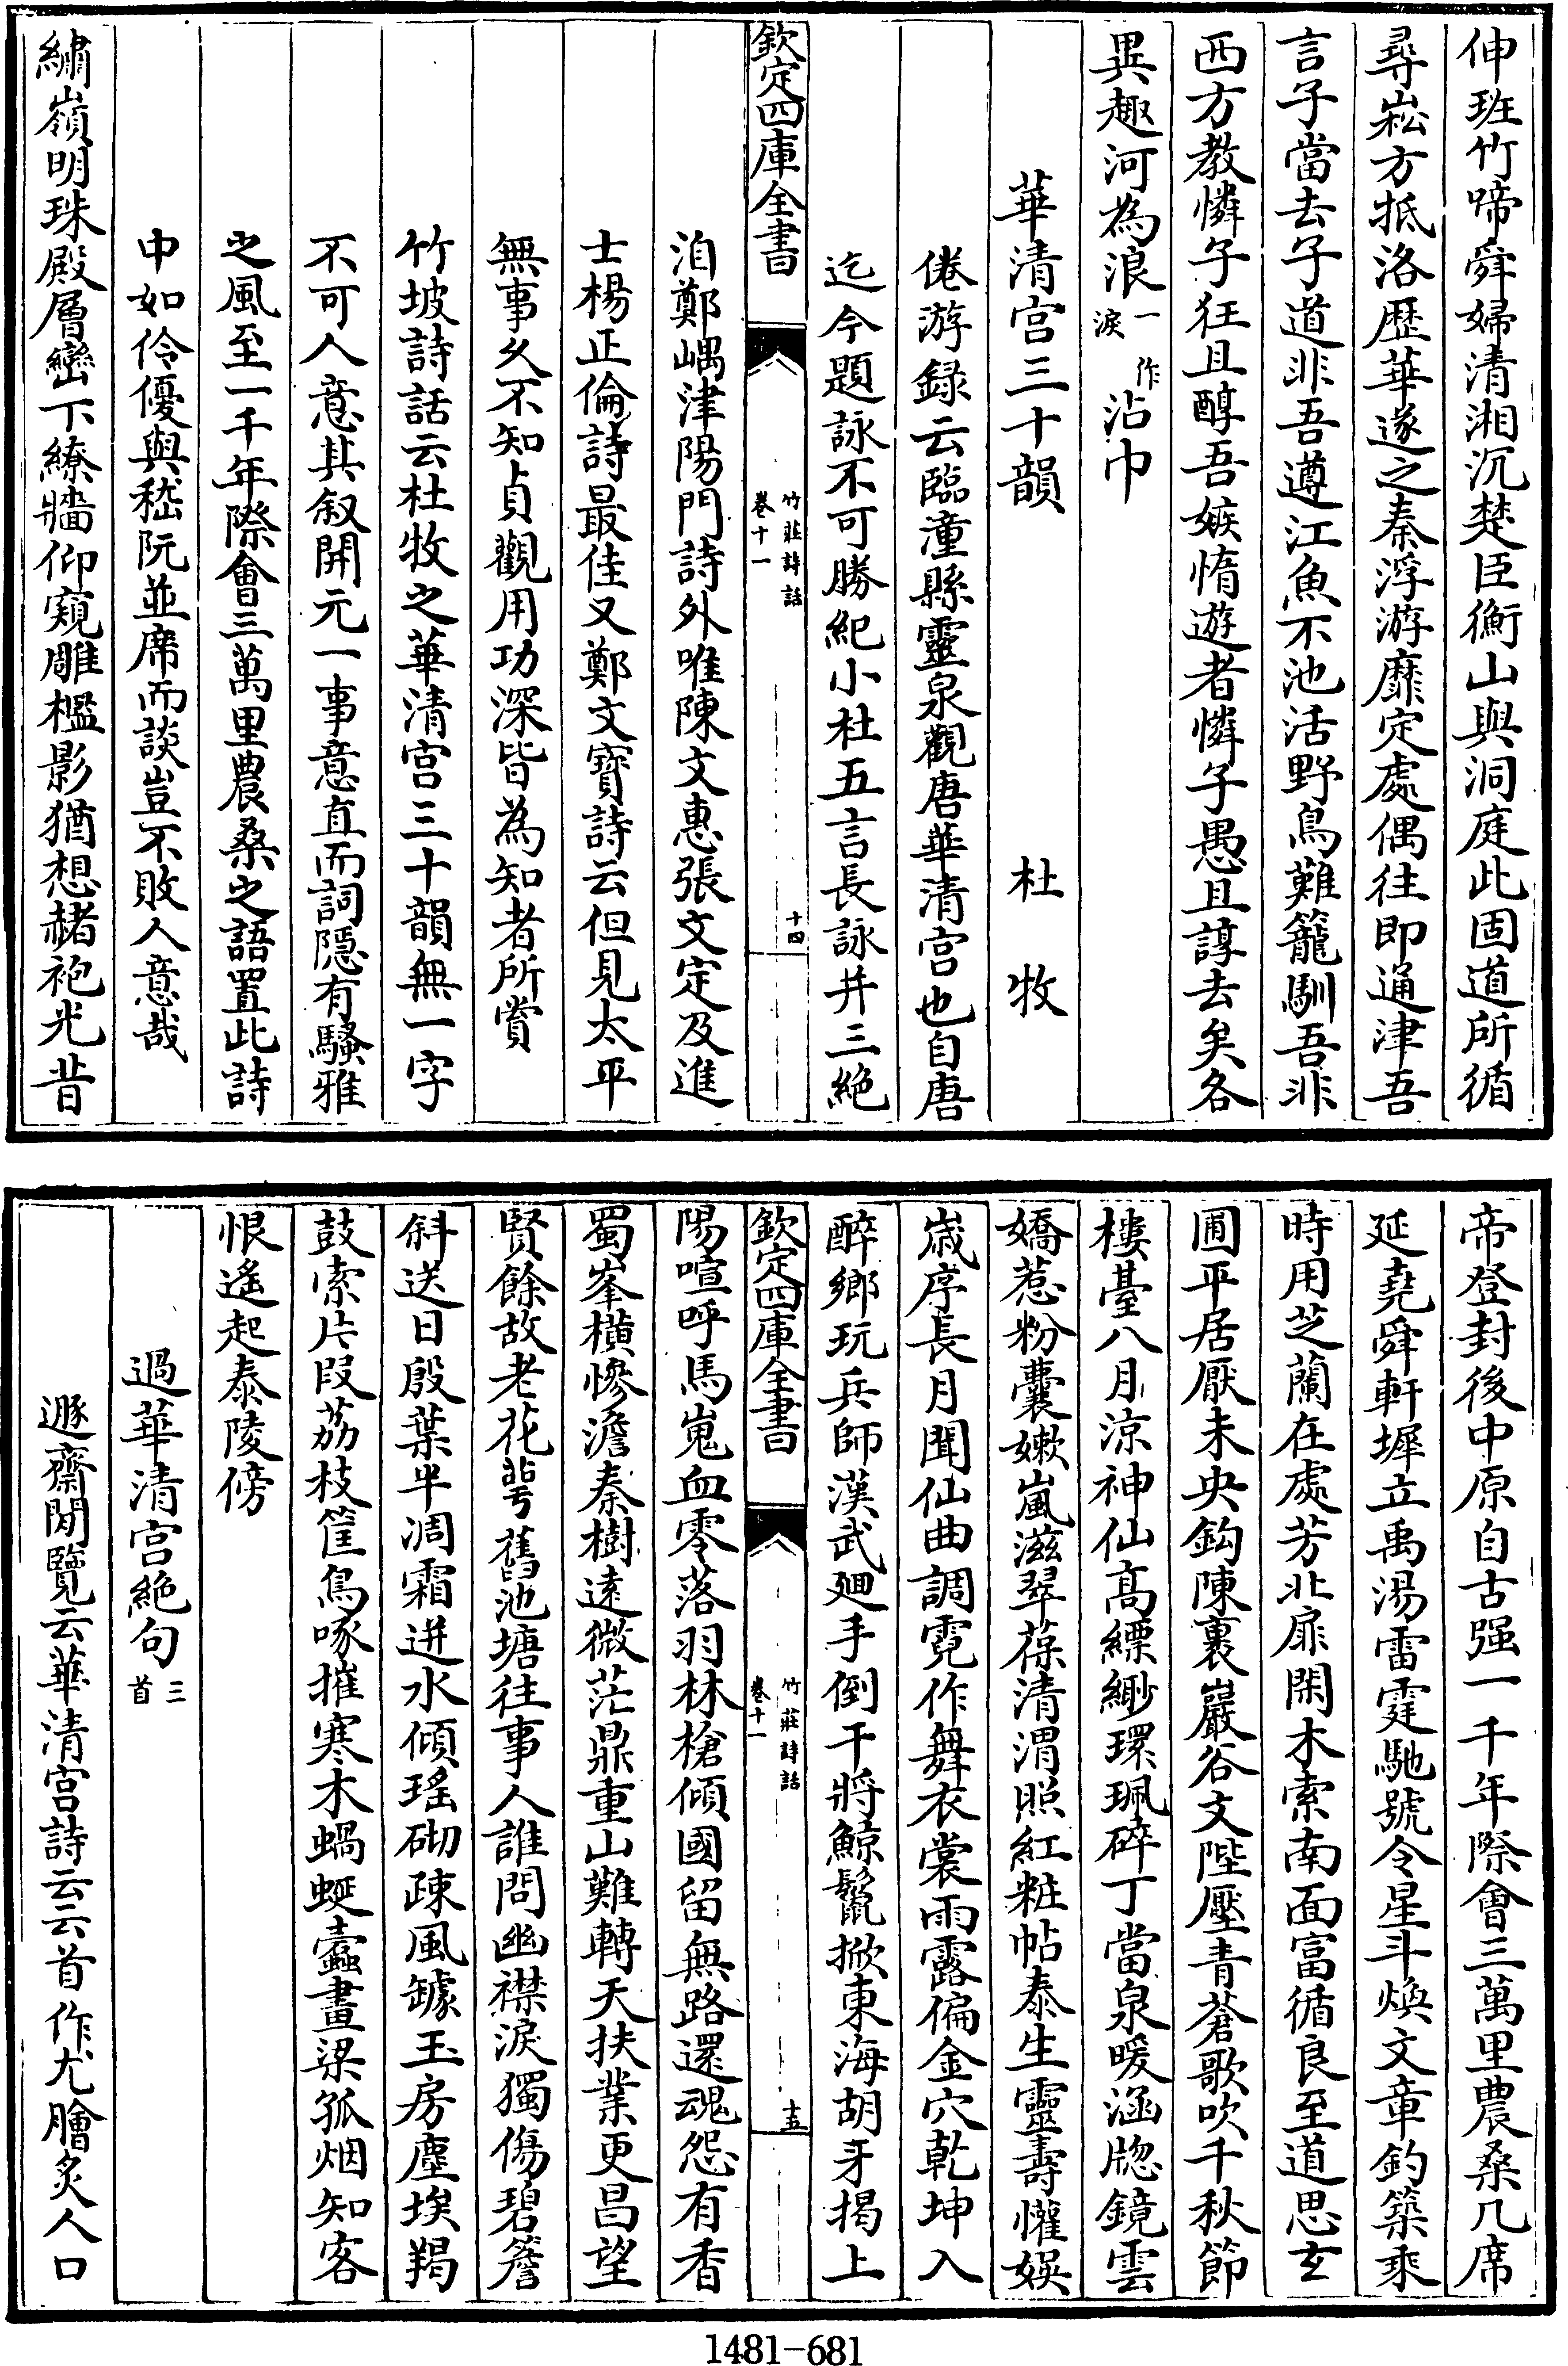 伸班竹啼舜婦清湘沉楚臣衡山與洞庭此固道所循
尋崧方抵洛歴華遂之秦浮游靡定處偶往即通津吾
言子當去子道非吾遵江魚不池活野鳥難籠馴吾非
西方教憐子狂且醇吾嫉惰遊者憐子愚且諄去矣各
異趣河為浪一作淚沾巾
華清宮三十韻　杜牧
倦游録云臨潼縣靈泉觀唐華清宮也自唐
迄今題詠不可勝紀小杜五言長詠并三絶
欽定四庫全書
竹莊詩話
卷十一
十四
洎鄭嵎津陽門詩外唯陳文惠張文定及進
士楊正倫詩最佳又鄭文寶詩云但見太平
無事乆不知貞觀用功深皆為知者所賞
竹坡詩話云杜牧之華清宮三十韻無一字
不可人意其叙開元一事意直而詞隱有騷雅
之風至一千年際會三萬里農桑之語置此詩
中如伶優與嵇阮並席而談豈不敗人意哉
繡嶺明珠殿層巒下繚牆仰窺雕檻影猶想赭袍光昔
帝登封後中原自古强一千年際會三萬里農桑几席
延堯舜軒墀立禹湯雷霆馳號令星斗煥文章釣築乘
時用芝蘭在處芳北扉閑木索南面富循良至道思𤣥
圃平居厭未央鈎陳裏巖谷文陛壓青蒼歌吹千秋節
樓臺八月涼神仙高縹緲環珮碎丁當泉暖涵牎鏡雲
嬌惹粉囊嫩嵐滋翠葆清渭照紅粧帖泰生靈壽懽娛
歲序長月聞仙曲調霓作舞衣裳雨露偏金穴乾坤入
醉鄉玩兵師漢武廻手倒干將鯨鬣掀東海胡牙揭上
欽定四庫全書
竹莊詩話
卷十一
十五
陽喧呼馬嵬血零落羽林槍傾國留無路還魂怨有香
蜀峯横慘澹秦樹逺微茫鼎重山難轉天扶業更昌望
賢餘故老花萼舊池塘往事人誰問幽襟淚獨傷碧簷
斜送日殷葉半凋霜迸水傾瑤砌疎風罅玉房塵埃羯
鼓索片段茘枝筐鳥啄摧寒木蝸蜒蠹畫梁孤烟知客
恨遙起泰陵傍
過華清宮絶句三首
遯齋閒覽云華清宮詩云云首作尤膾炙人口
1481-681